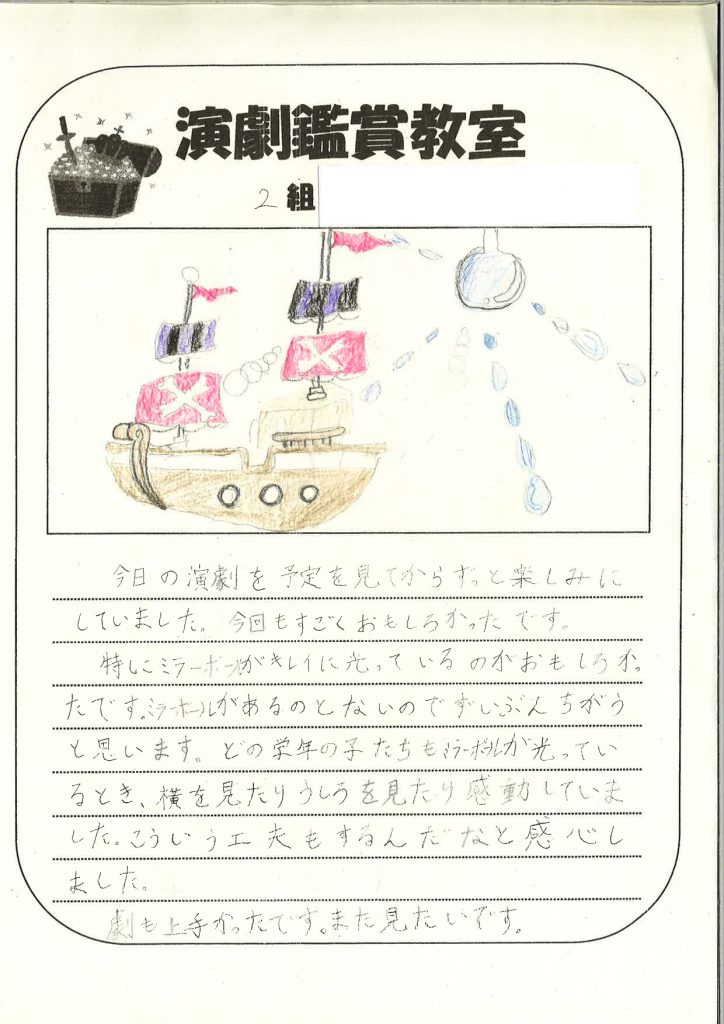 演劇鑑賞教室
2組
今日の演劇を予定を見てからずっと楽しみに
していました。今回もすごくおもしろかったです。
特にミラーボールがキレイに光っているのがおもしろかっ
たです。ミラーボールがあるのとないのでずいぶんちがう
と思います。どの学年の子たちもミラーボールが光ってい
るとき、横を見たりうしろを見たり感動していま
した。こういう工夫もするんだなと感心し
ました。
劇も上手かったです。また見たいです。